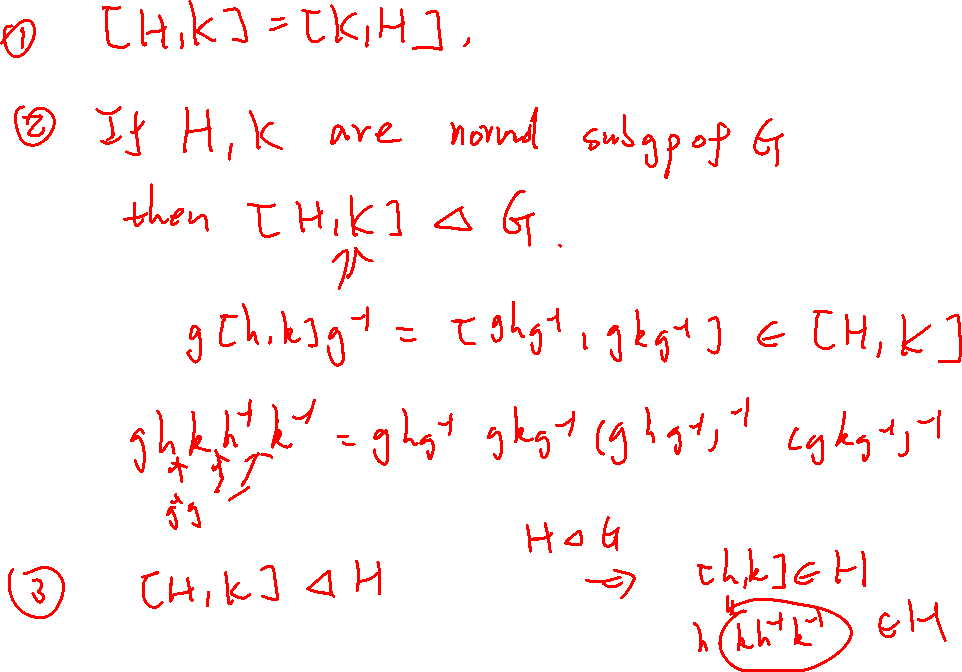 ① [H,K]=[K,H],
② If H,K are normal subgp of G
then [H,K] ◁ G.
g[h,k]g⁻¹ = [ghg⁻¹, gkg⁻¹] ∈ [H,K]
ghkh⁻¹k⁻¹ = ghg⁻¹ gkg⁻¹ (ghg⁻¹)⁻¹ (gkg⁻¹)⁻¹
g⁻¹g
H◁G
③ [H,K] ◁ H ⇒ [h,k]∈H
h kh⁻¹k⁻¹ ∈H